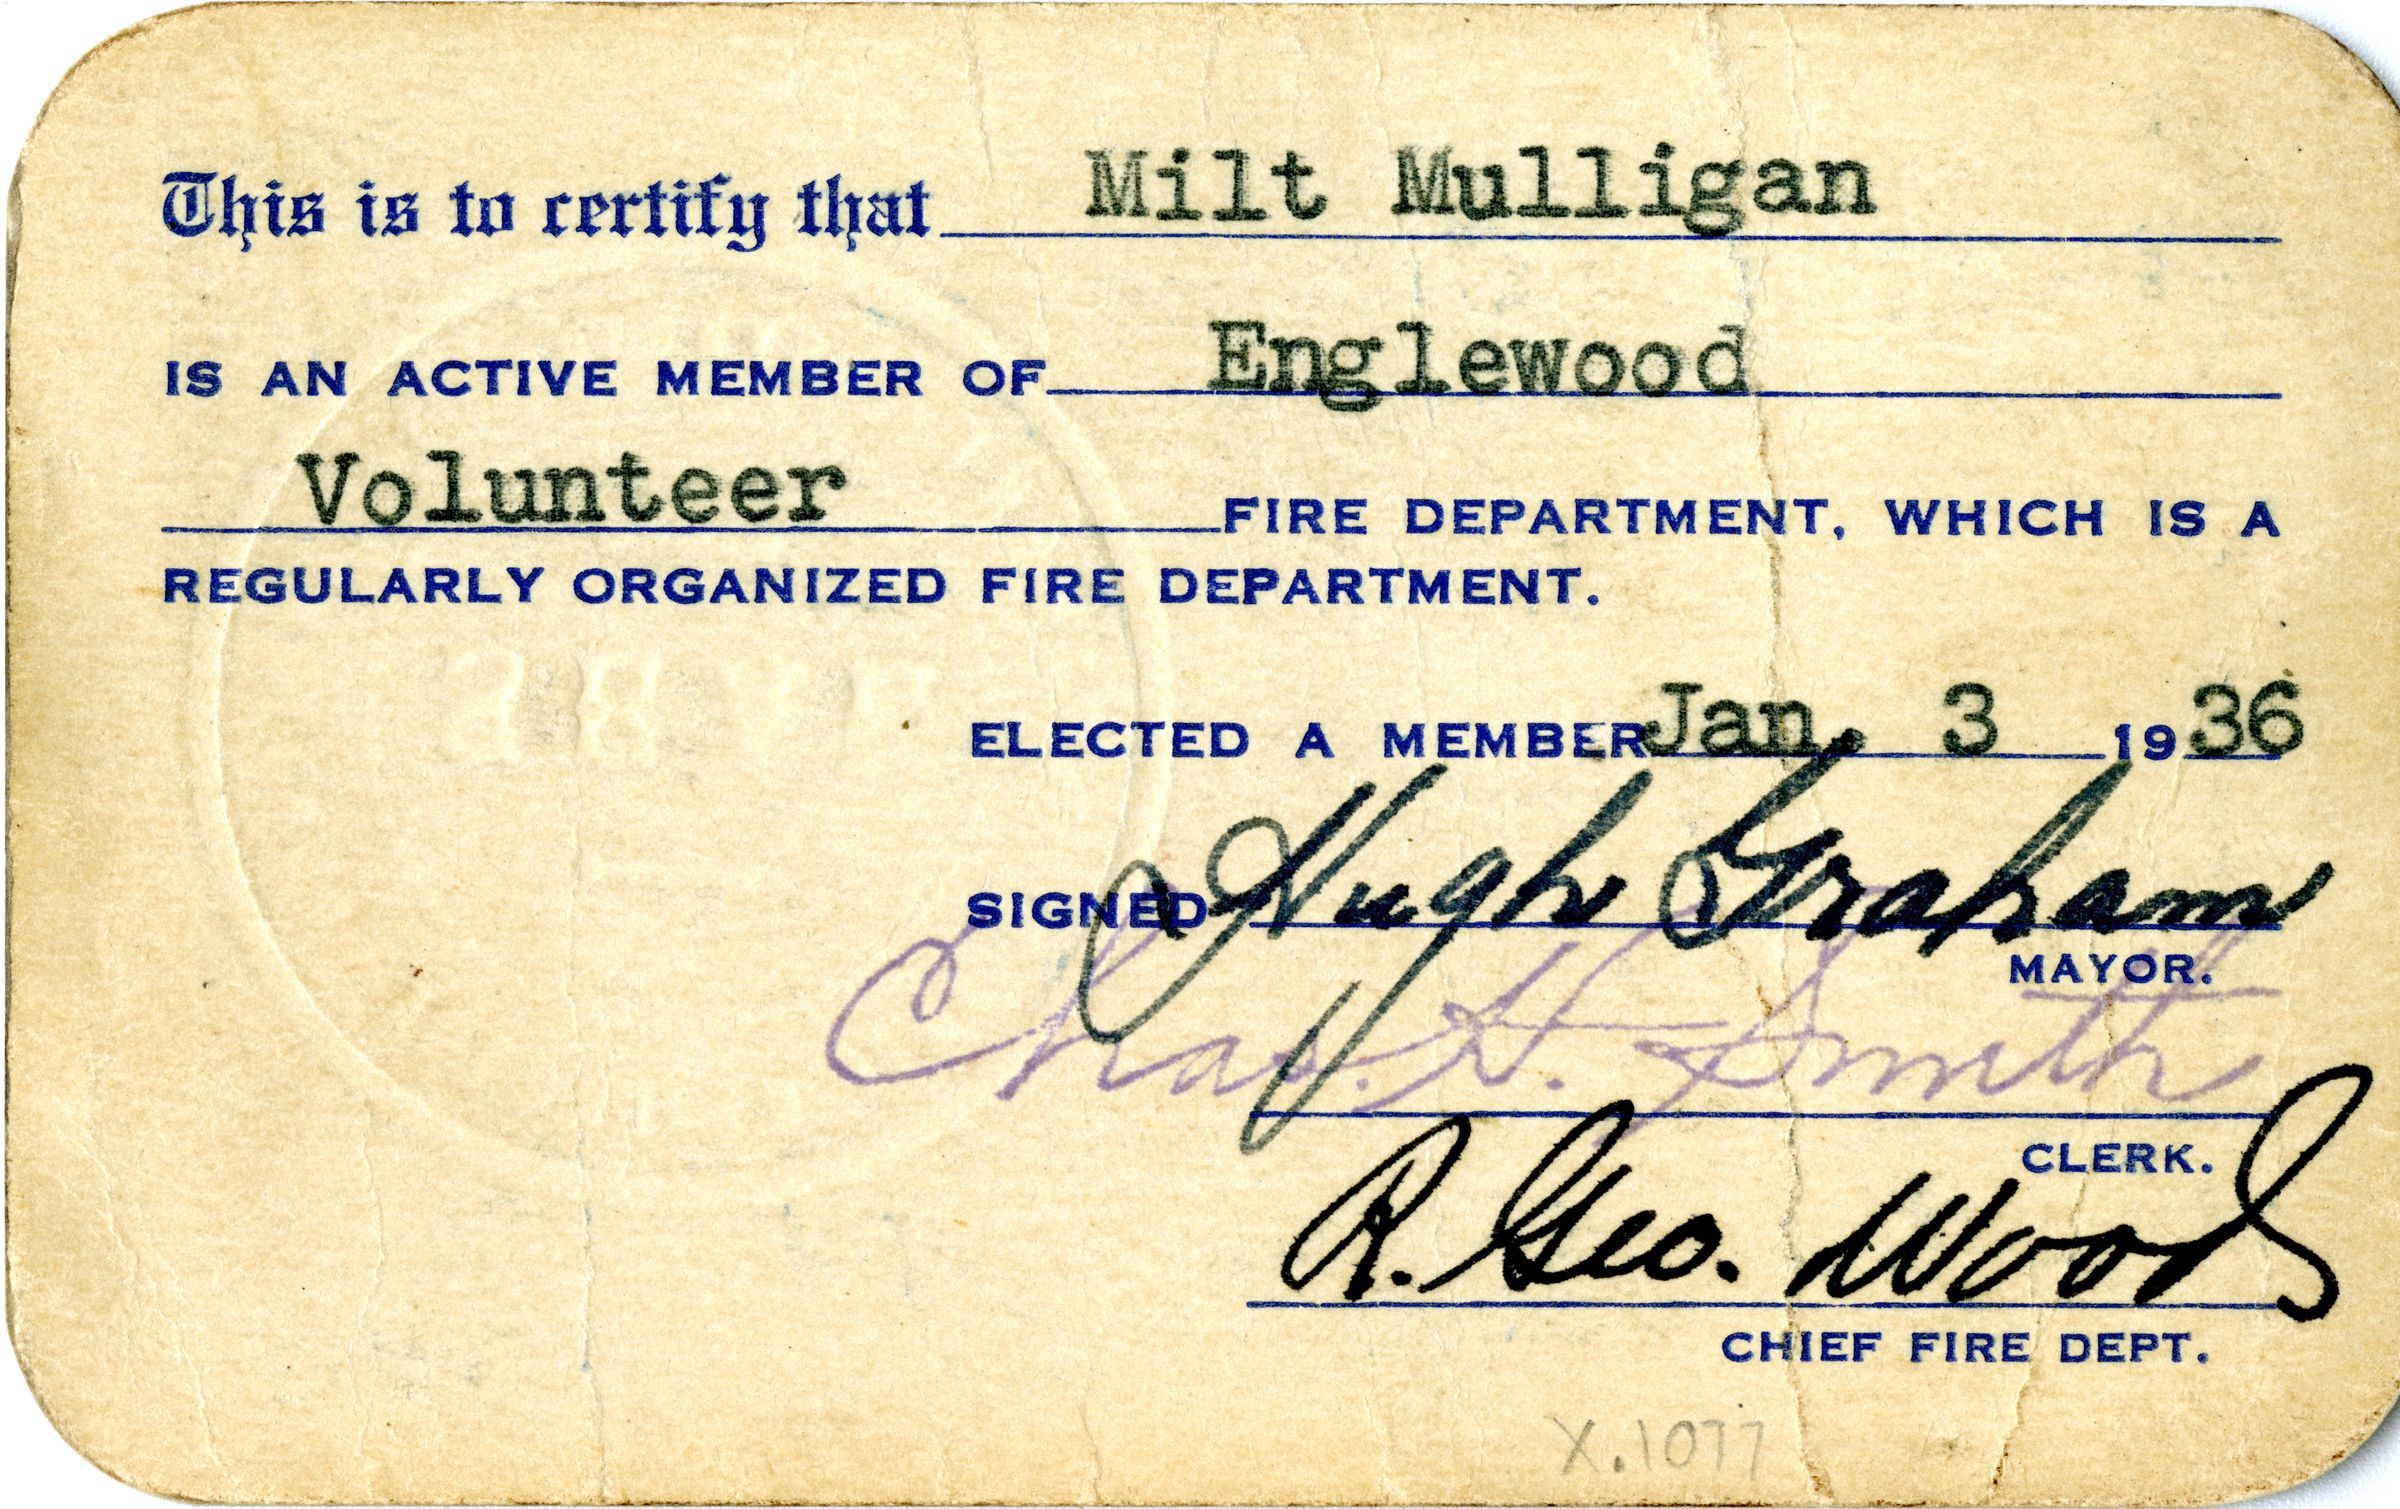 This is to certify that Milt Mulligan
IS AN ACTIVE MEMBER OF Englewood
Volunteer FIRE DEPARTMENT, WHICH IS A
REGULARLY ORGANIZED FIRE DEPARTMENT.
ELECTED A MEMBER Jan. 3 1936
SIGNED Hugh Graham
MAYOR.
Chas. H. Smith
CLERK.
R. Geo. Woods
CHIEF FIRE DEPT.
X.1077